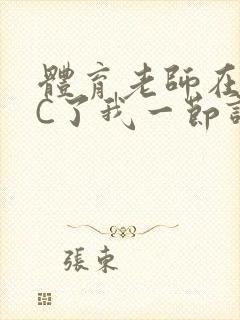 體育老師在
C了我一節
張東